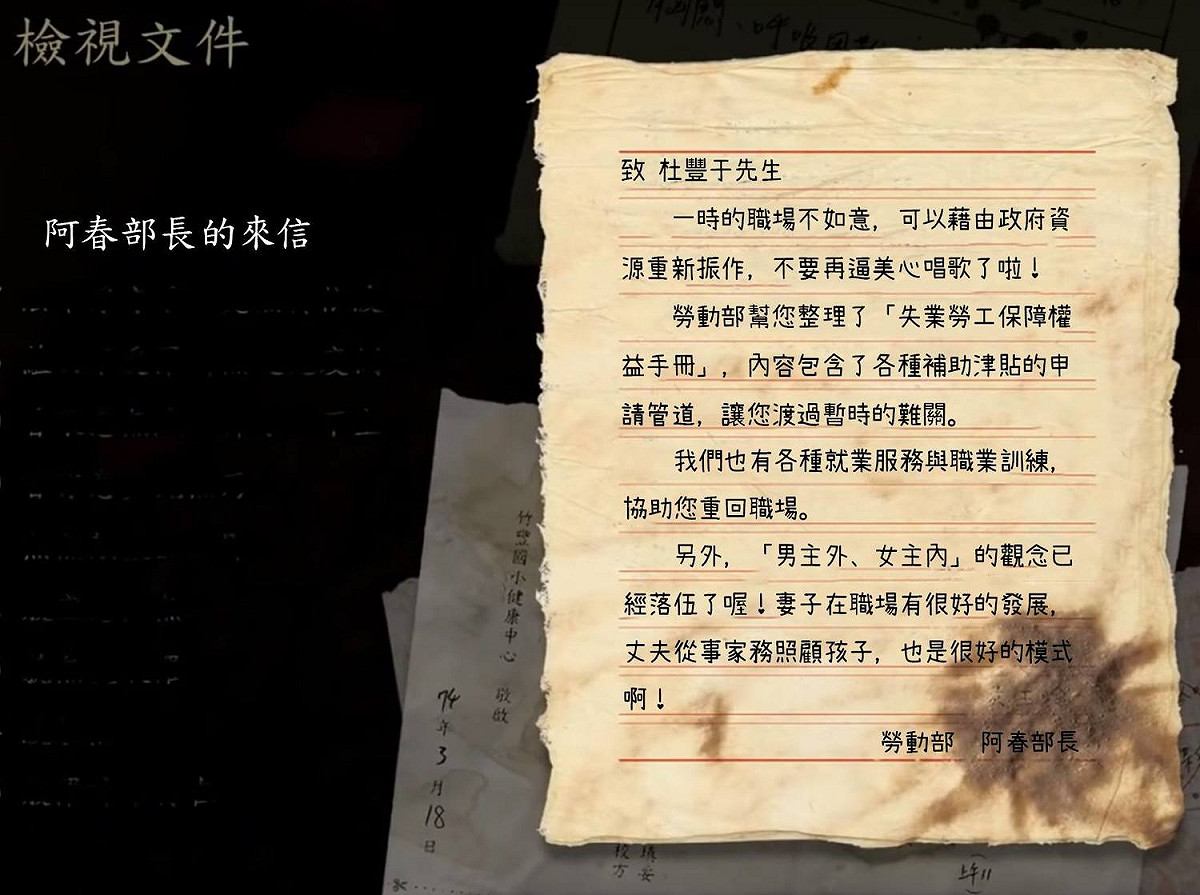 檢視文件
阿春部長的來信
致 杜豐于先生
一時的職場不如意，可以藉由政府資
源重新振作，不要再逼美心唱歌了啦！
勞動部幫您整理了「失業勞工保障權
益手冊」，內容包含了各種補助津貼的申
請管道，讓您渡過暫時的難關。
我們也有各種就業服務與職業訓練，
協助您重回職場。
另外，「男主外、女主內」的觀念已
經落伍了喔！妻子在職場有很好的發展，
丈夫從事家務照顧孩子，也是很好的模式
啊！
勞動部 阿春部長
竹豐國小健康中心 敬啟
74年3月18日